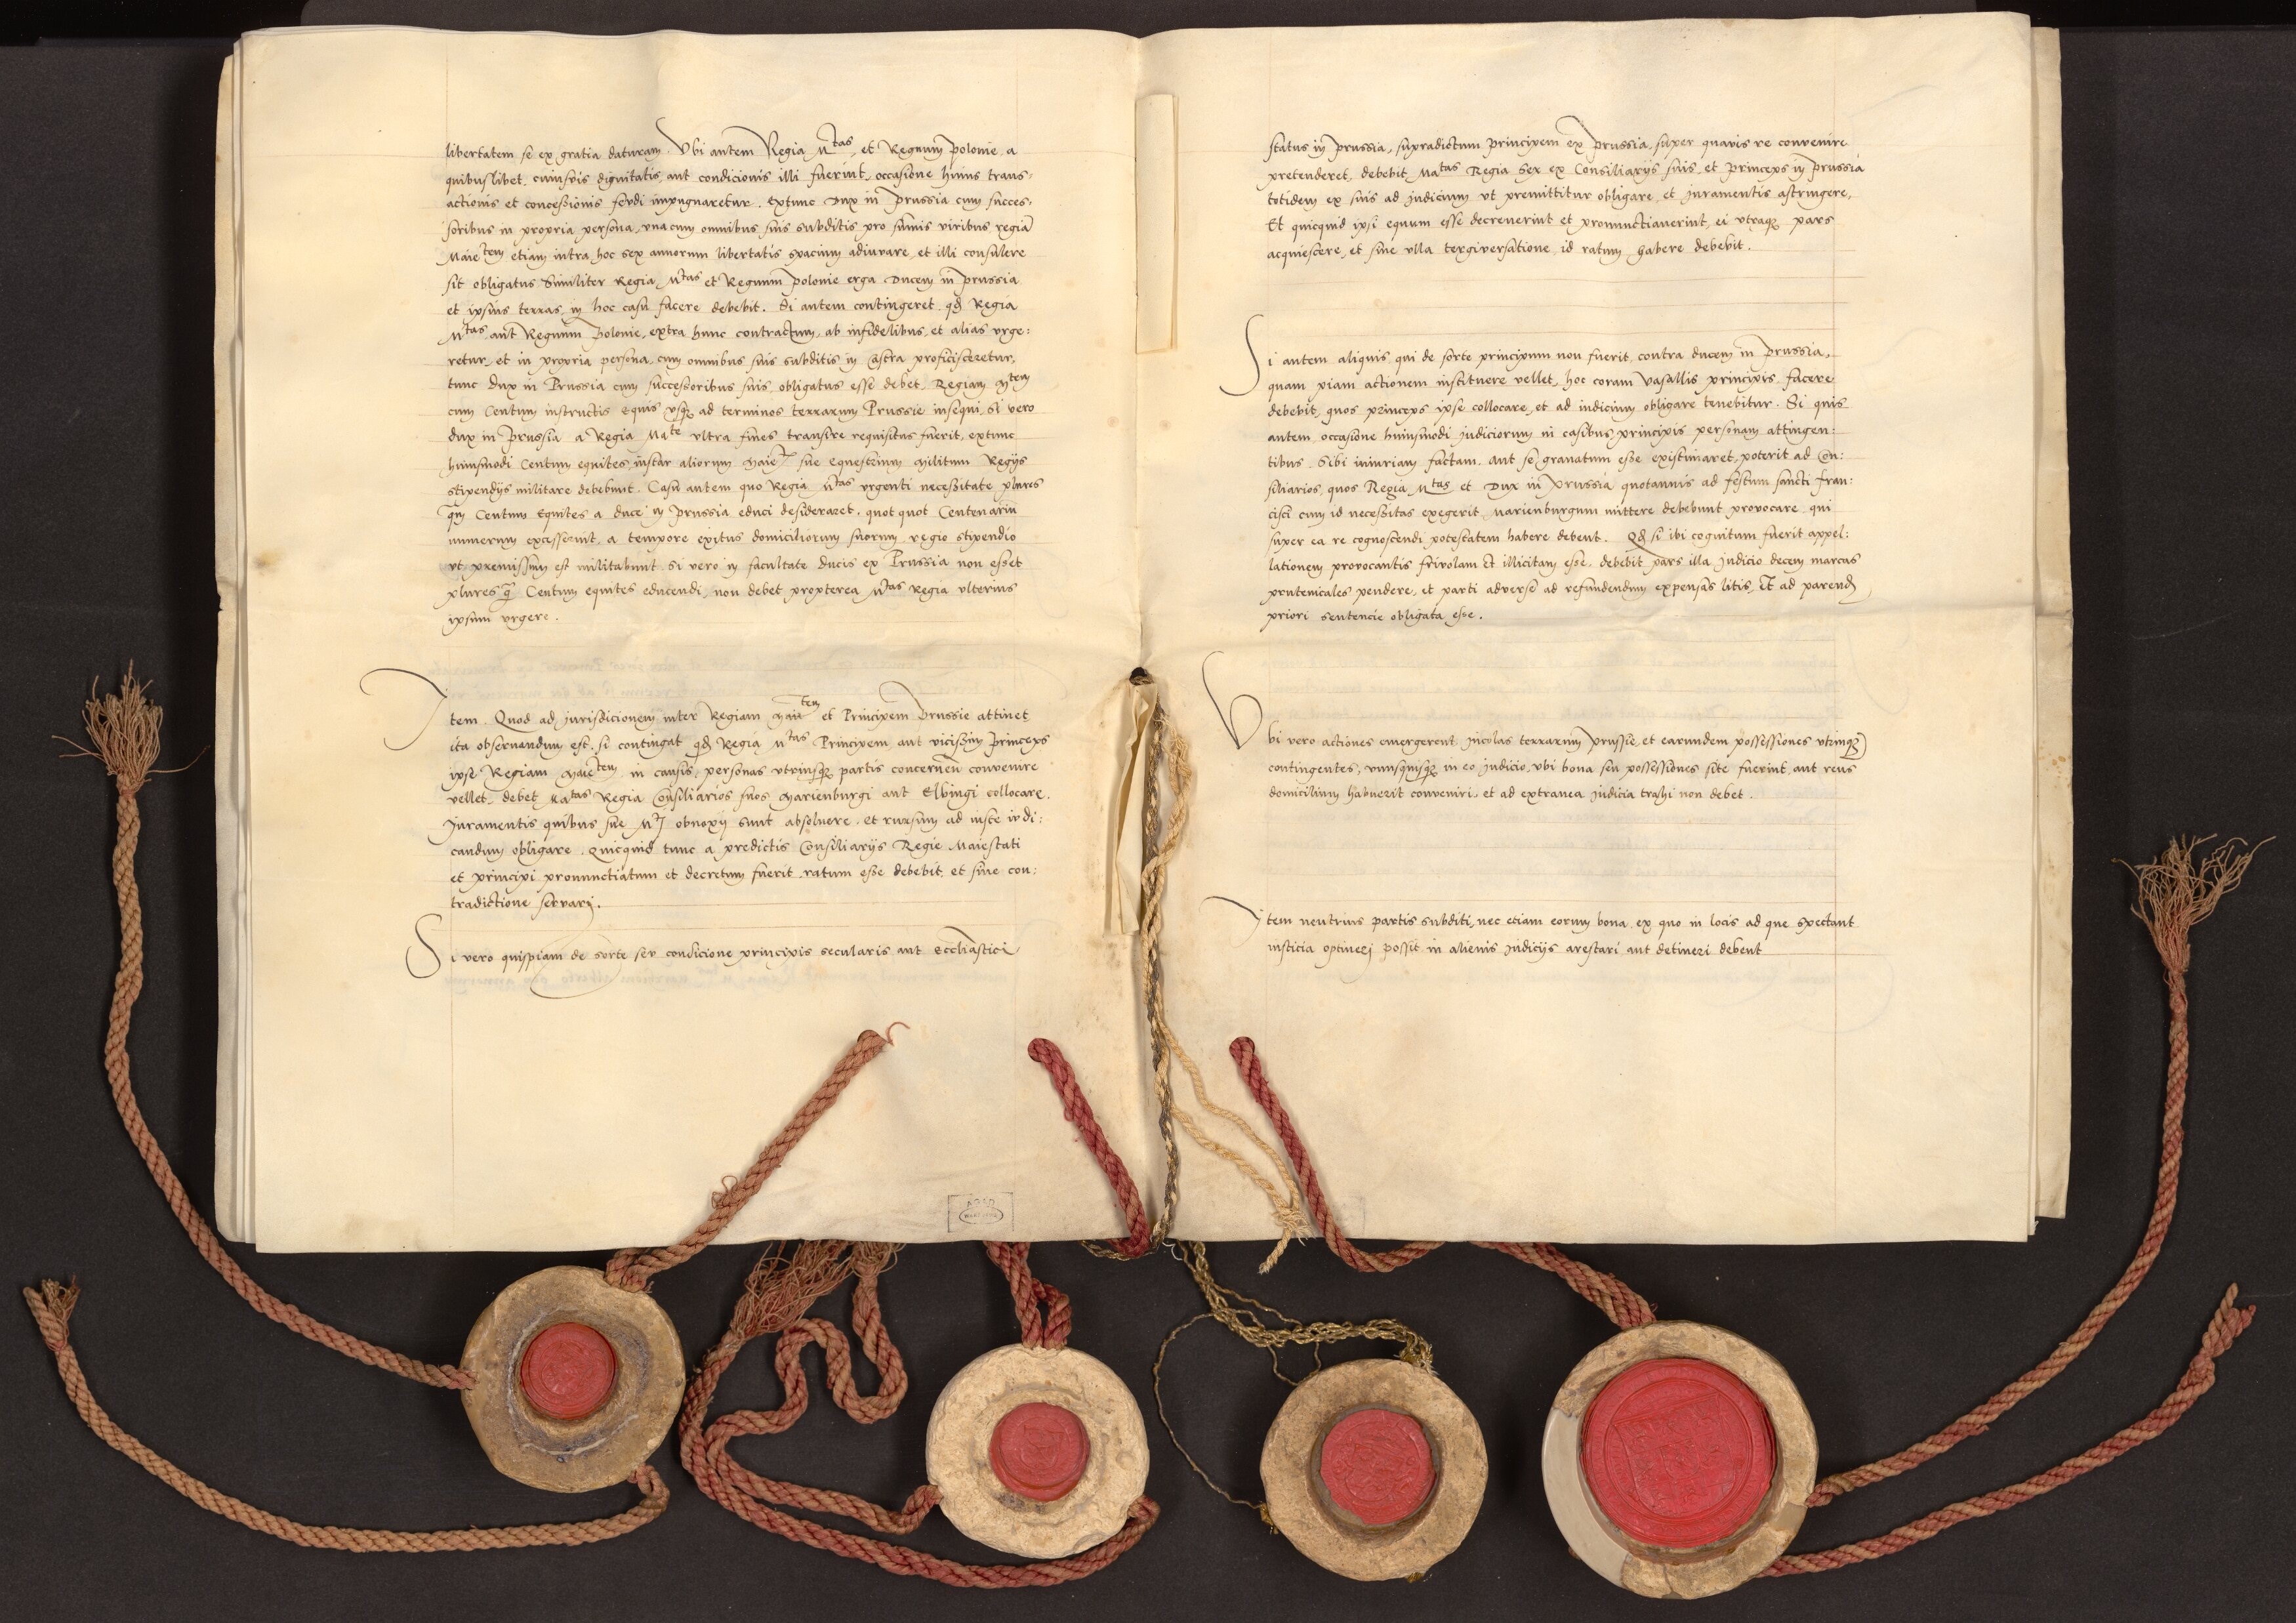 libertatem se ex gratia daturam. Vbi autem Regia Mtas, et Regnum Polonie, a
quibuslibet, cuiusvis dignitatis, aut condicionis illi fuerint, occasione huius trans:
actionis et concessionis feudi impugnaretur. Extunc Dux in Prussia cum succes:
soribus in propria persona, vnacum omnibus suis subditis, pro summis viribus regiam
Maietem etiam intra hoc sex annorum libertatis spacium adiuvare, et illi consulere
sit obligatus Similiter Regia Mtas et Regnum Polonie erga Ducem in Prussia
et ipsius terras, in hoc casu facere debebit. Si autem contingeret, qd Regia
Mtas aut Regnum Polonie, extra hunc contractum, ab infidelibus, et alias vrge:
retur, et in propria persona, cum omnibus suis subditis in Castra proficisceretur,
tunc Dux in Prussia cum successoribus suis, obligatus esse debet, Regiam Mtem
cum Centum instructis Equis vsq3 ad terminos terrarum Prussie insequi, Si vero
dux in Prussia a Regia Mate vltra fines transire requisitus fuerit, extunc
huiusmodi Centum equites, instar aliorum Maietis sue Equestrium Militum Regijs
stipendijs militare debebunt. Casu autem quo Regia Mtas vrgenti necessitate plures
qm Centum Equites a duce in Prussia educi desideraret, quot quot Centenariu
numerum excesserint, a tempore exitus domiciliorum suorum, regio stipendio
vt premissum est militabunt. Si vero in facultate ducis ex Prussia non esset
plures q Centum equites educendi, non debet propterea Mtas Regia vlterius
ipsum vrgere.
Item. Quod ad jurisdicionem inter Regiam Maietem et Principem Prussie attinet
ita obseruandum est, si contingat qd Regia Mtas Principem, aut vicissim Princeps
ipse Regiam Maietem, in causis, personas vtriusq3 partis concernen convenire
vellet, debet Matas Regia Consiliarios suos Marienburgi aut Elbingi collocare,
Juramentis quibus sue Mti obnoxij sunt absoluere, et rursum ad iuste iudi:
candum obligare. Quicquid tunc a predictis Consiliarijs Regie Maiestati
et principi pronunctiatum et decretum fuerit, ratum esse debebit, et sine con:
tradictione servari.
Si vero quispiam de sorte seu condicione principis secularis aut Eccliastici
status in Prussia, supradictum Principem ex Prussia, super quavis re convenire
pretenderet, debebit Matas Regia Sex ex Consiliarijs suis, et Princeps in Prussia
totidem ex suis ad judicium vt premittitur obligare, et juramentis astringere,
Et quicquid ipsi equum esse decreuerint et pronunctiauerint, ei vtraq3 pars
acquiescere, et sine vlla tergiversatione, id ratum habere debebit.
Si autem aliquis, qui de sorte principum non fuerit, contra ducem in Prussia,
quam piam actionem instituere vellet, hoc coram Vasallis principis, facere
debebit, quos princeps ipse collocare, et ad iudicium obligare tenebitur. Si quis
autem, occasione huiusmodi judiciorum in casibus principis personam attingen:
tibus, Sibi iniuriam factam, aut se grauatum esse existimaret, poterit ad Con:
siliarios, quos Regia Mtas et Dux in Prussia quotannis ad festum sancti Fran:
cisci cum id necessitas exegerit, Marienburgum mittere debebunt provocare, qui
super ea re cognoscendi potestatem habere debent. Qd si ibi cognitum fuerit appel:
lationem provocantis frivolam et illicitam esse, debebit pars illa Judicio decem marcas
prutenicales pendere, et parti adverse ad refundendum expensas litis, Et ad parend
priori sentencie obligata esse.
Vbi vero actiones emergerent, incolas terrarum Prussie, et earundem possessiones vtrinq3
contingentes, vnusquisq3 in eo judicio, vbi bona seu possessiones site fuerint, aut reus
domicilium habuerit conveniri, et ad extranea judicia trahi non debet.
Item neutrius partis subditi, nec etiam eorum bona, ex quo in locis ad que spectant
iusticia optineri possit in alienis judicijs arestari aut detineri debent
AGAD